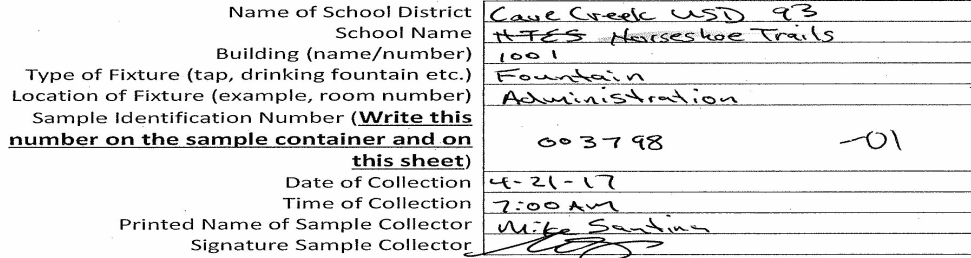 Name of School District Cave Creek USD 93
School Name HTES Horseshoe Trails
Building (name/number) 1001
Type of Fixture (tap, drinking fountain etc.) Fountain
Location of Fixture (example, room number) Administration
Sample Identification Number (Write this
number on the sample container and on 003798 -01
this sheet)
Date of Collection 4-21-17
Time of Collection 7:00 AM
Printed Name of Sample Collector Mike
Signature Sample Collector